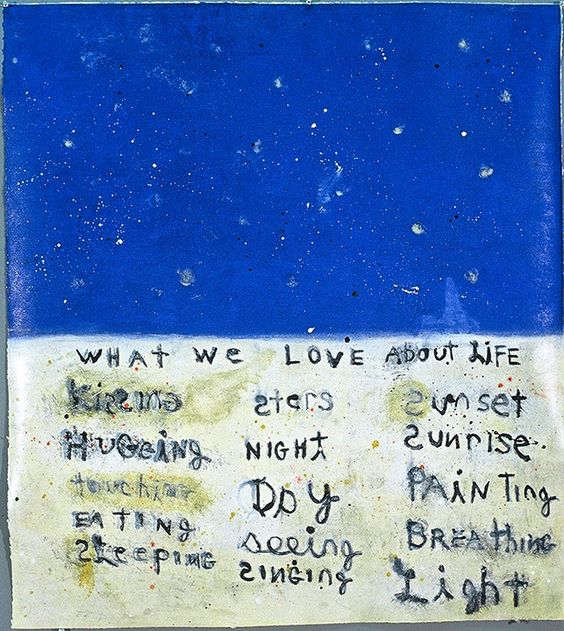 WHAT WE LOVE ABOUT LIFE
Kissing
HUGGING
touching
EATING
Sleeping
stars
NIGHT
DAY
seeing
SINGING
Sunset
Sunrise
PAINTing
BREATHING
Light